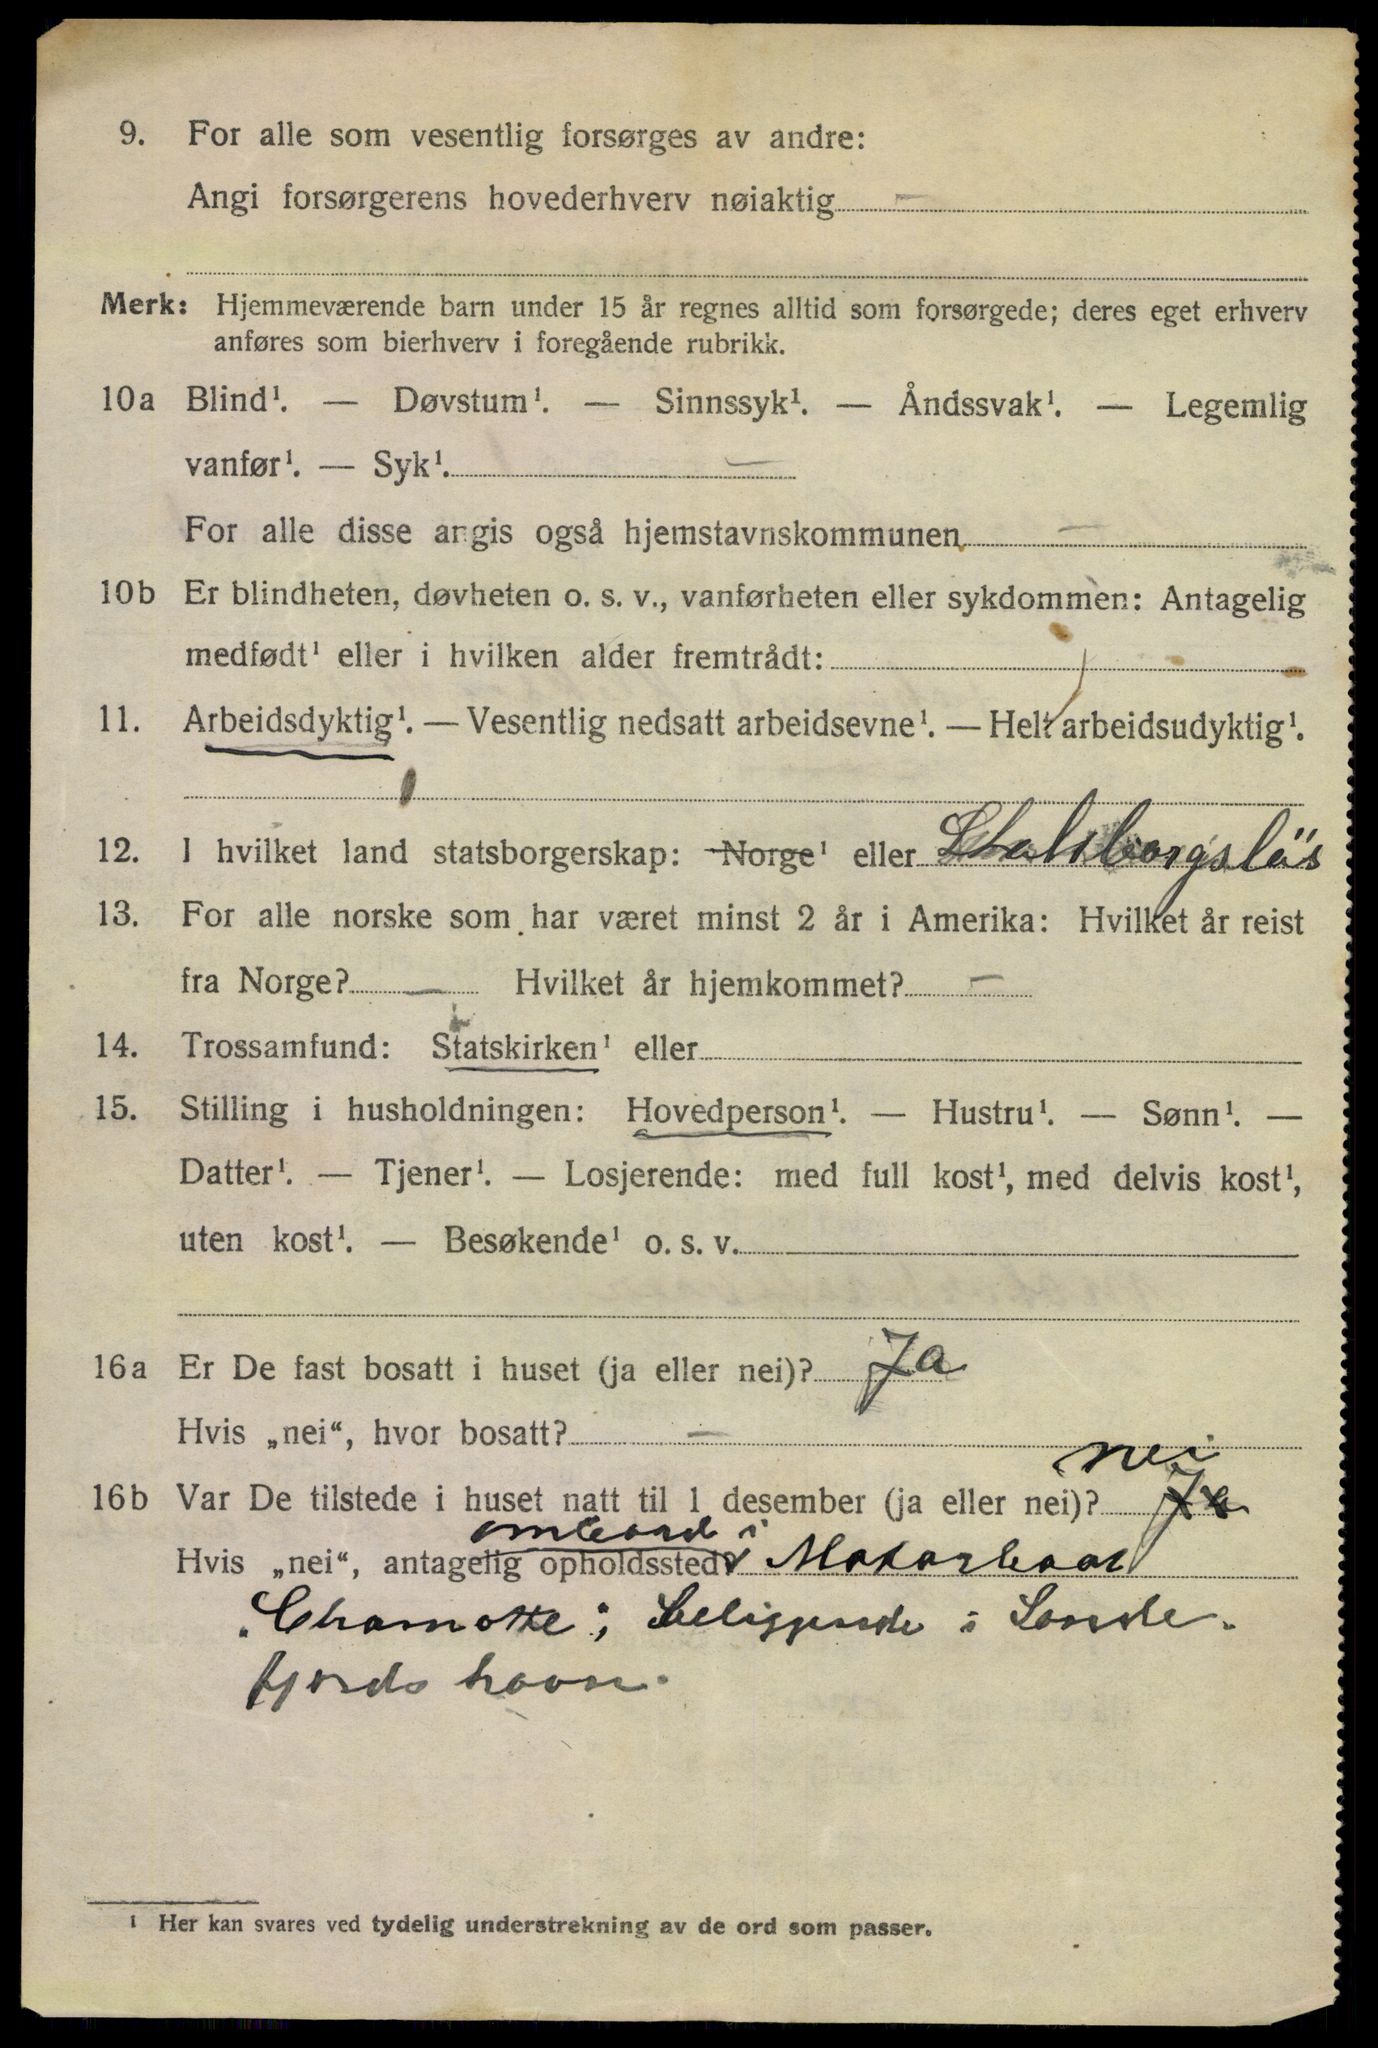 9. For alle som vesentlig forsørges av andre:
Angi forsørgerens hovederhverv nøiaktig —
Merk: Hjemmeværende barn under 15 år regnes alltid som forsørgede; deres eget erhverv
anføres som bierhverv i foregående rubrikk.
10a Blind¹. — Døvstum¹. — Sinnssyk¹. — Åndssvak¹. — Legemlig
vanfør¹. — Syk¹. —
For alle disse angis også hjemstavnskommunen —
10b Er blindheten, døvheten o. s. v., vanførheten eller sykdommen: Antagelig
medfødt¹ eller i hvilken alder fremtrådt:
11. Arbeidsdyktig¹. — Vesentlig nedsatt arbeidsevne¹. — Helt arbeidsudyktig¹.
12. I hvilket land statsborgerskap: Norge¹ eller Statsborgsløs
13. For alle norske som har været minst 2 år i Amerika: Hvilket år reist
fra Norge? — Hvilket år hjemkommet? —
14. Trossamfund: Statskirken¹ eller
15. Stilling i husholdningen: Hovedperson¹. — Hustru¹. — Sønn¹. —
Datter¹. — Tjener¹. — Losjerende: med full kost¹, med delvis kost¹,
uten kost¹. — Besøkende¹ o. s. v.
16a Er De fast bosatt i huset (ja eller nei)? Ja
Hvis „nei“, hvor bosatt? —
nei
16b Var De tilstede i huset natt til 1 desember (ja eller nei)? Ja
ombord i
Hvis „nei“, antagelig opholdssted Motorbaat
"Chamotte"; beliggende i Sande-
fjords havn.
¹ Her kan svares ved tydelig understrekning av de ord som passer.